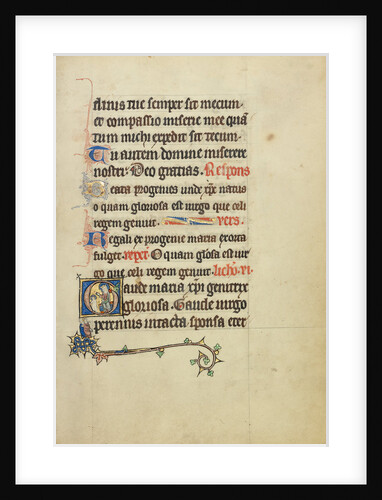 tarus tue semper sit mecum.
et compassio miserie mee quan
tum michi expedit sit tecum.
Tu autem domine miserere
nostri. Deo gratias. Respons
Beata progenies unde xp̄c natus
o quam gloriosa est uirgo que celi
regem genuit. vers.
Regali ex progenie maria exorta
fulget. repet. O quam glosa est uir
go que celi regem genuit. lectio. vi.
Gaude maria xp̄i genitrix
gloriosa. Gaude uirgo
perennis intacta sponsa eter